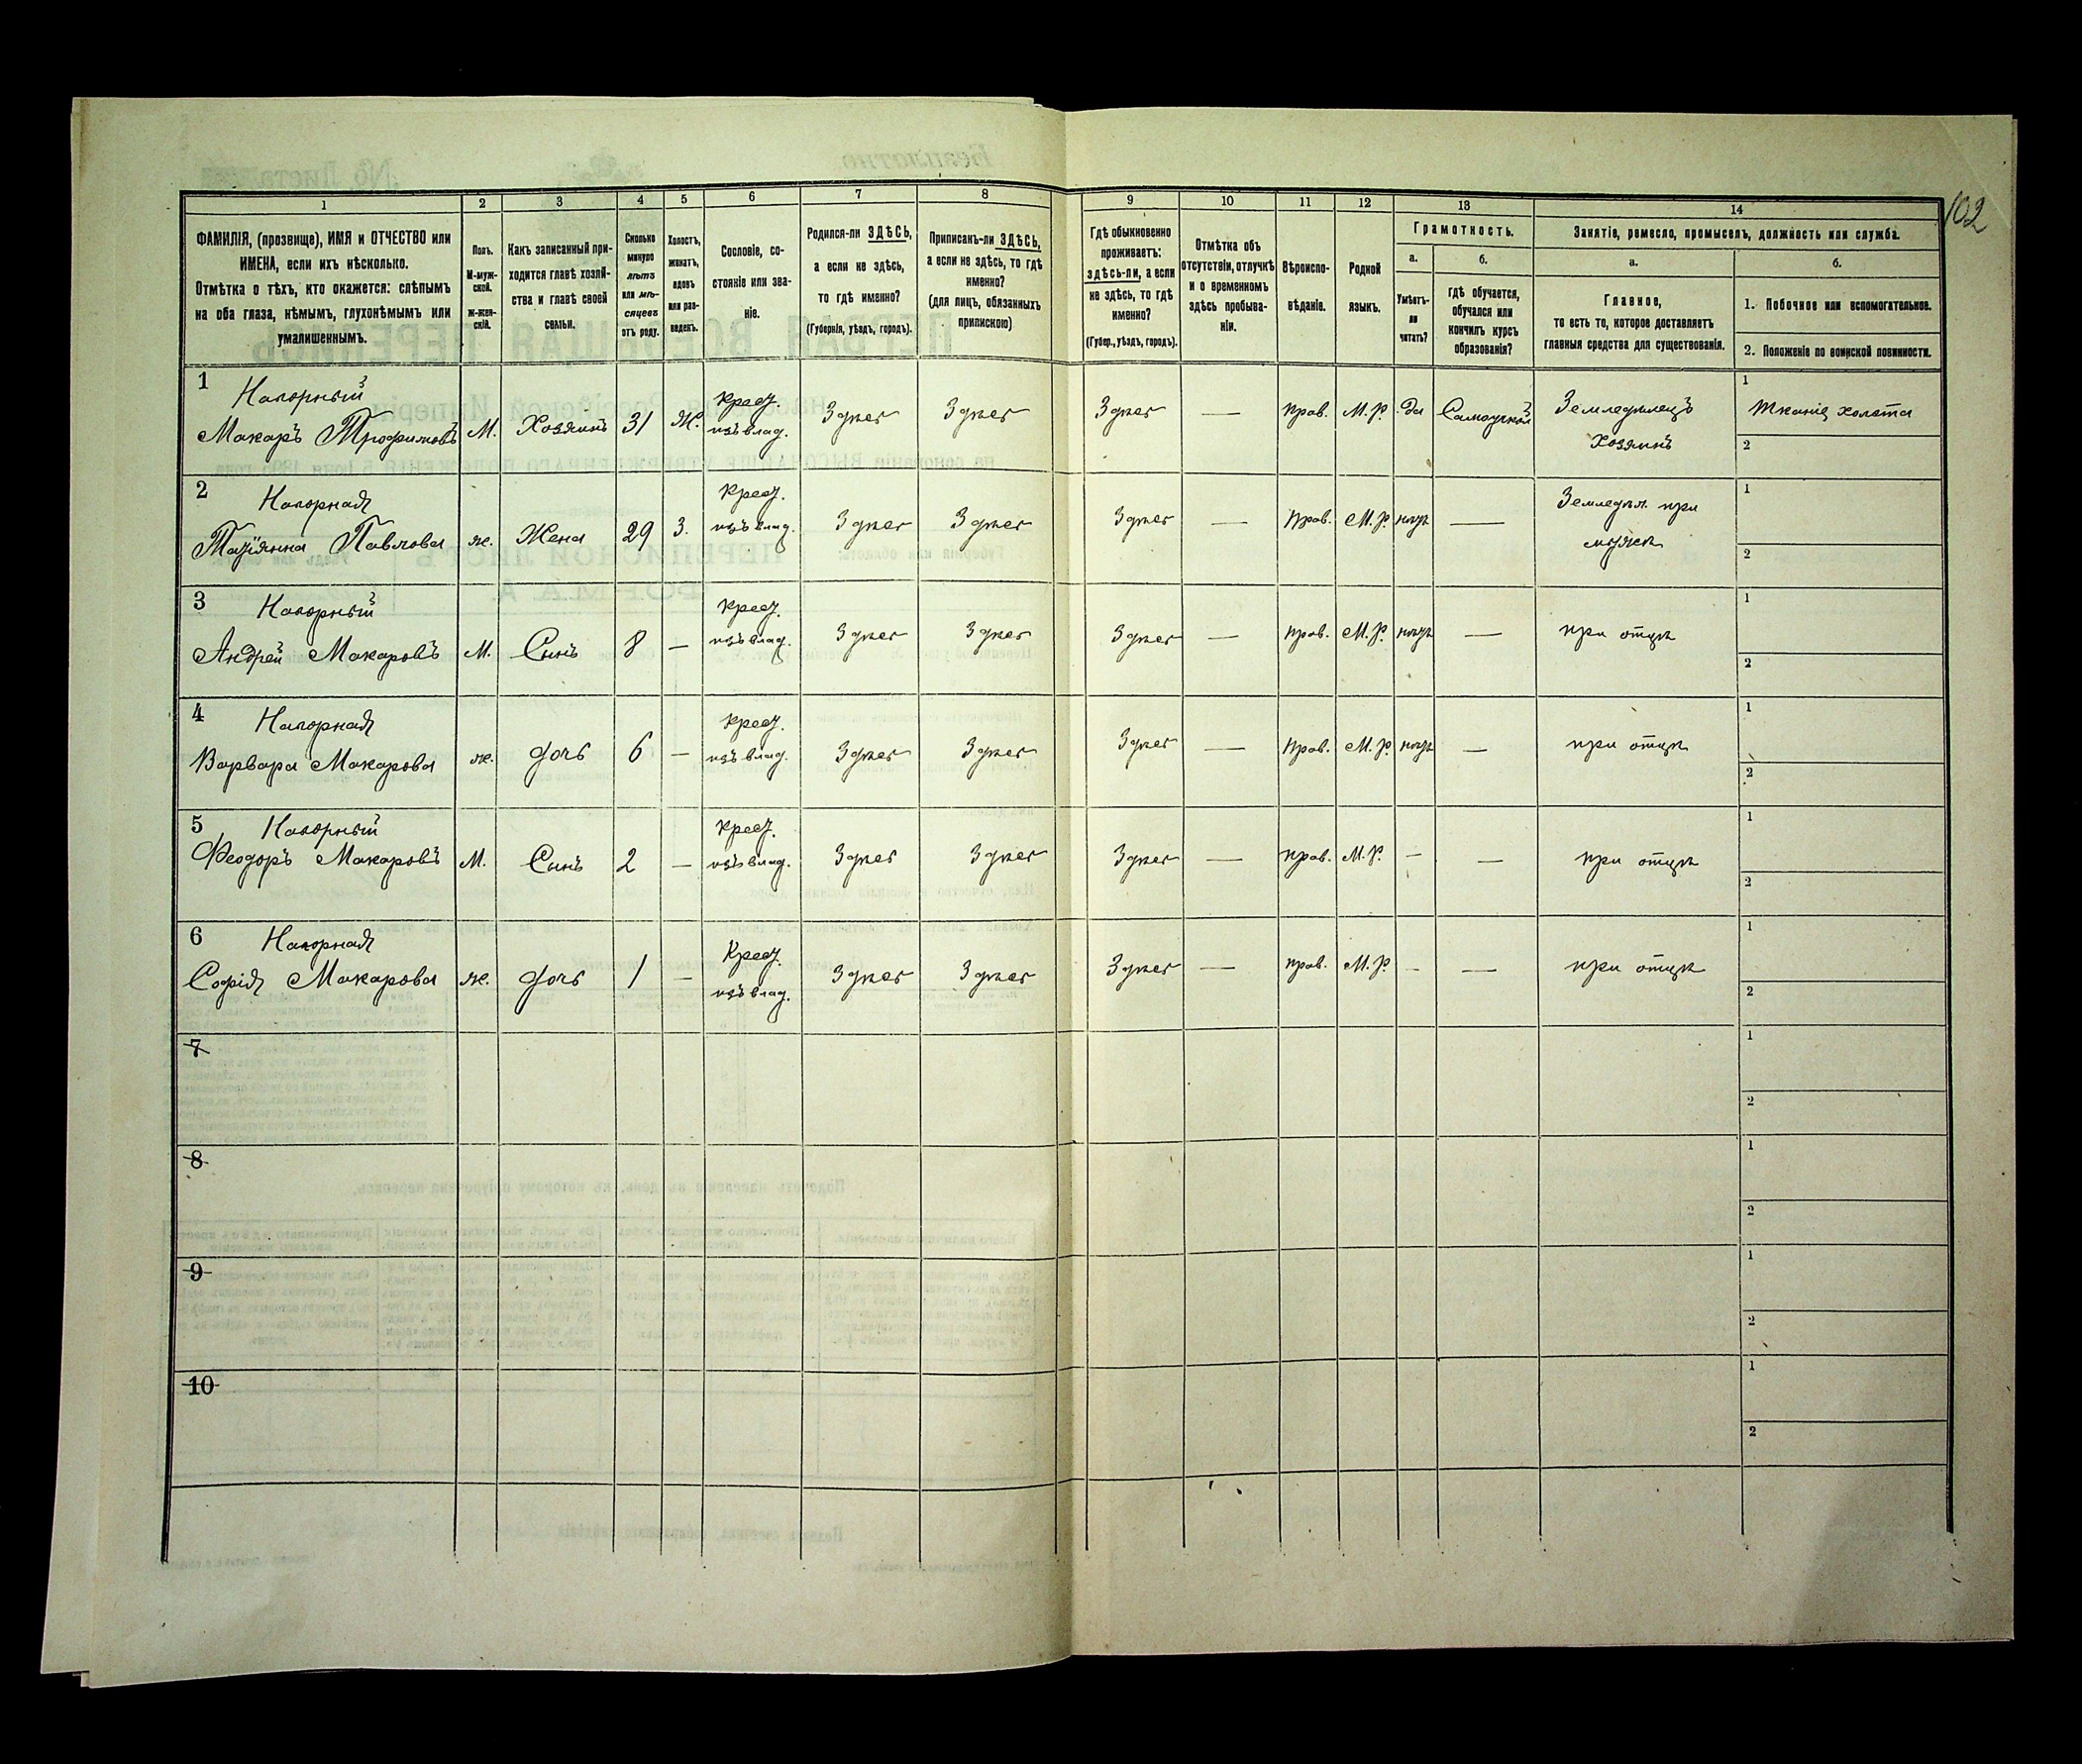 102
1 2 3 4 5 6 7 8 9 10 11 12 13 14
ФАМИЛІЯ, (прозвище), ИМЯ и ОТЧЕСТВО или
ИМЕНА, если ихъ нѣсколько.
Отмѣтка о тѣхъ, кто окажется: слѣпымъ
на оба глаза, нѣмымъ, глухонѣмымъ или
умалишеннымъ.
Полъ.
М-муж-
ской.
ж-жен-
скій.
Какъ записанный при-
ходится главѣ хозяй-
ства и главѣ своей
семьи.
Сколько
минуло
лѣтъ
или мѣ-
сяцевъ
отъ роду.
Холостъ,
женатъ,
вдовъ
или раз-
веденъ.
Сословіе, со-
стояніе или зва-
ніе.
Родился-ли ЗДѢСЬ,
а если не здѣсь,
то гдѣ именно?
(Губернія, уѣздъ, городъ).
Приписанъ-ли ЗДѢСЬ,
а если не здѣсь, то гдѣ
именно?
(для лицъ, обязанныхъ
припискою)
Гдѣ обыкновенно
проживаетъ:
здѣсь-ли, а если
не здѣсь, то гдѣ
именно?
(Губер., уѣздъ, городъ).
Отмѣтка объ
отсутствіи, отлучкѣ
и о временномъ
здѣсь пребыва-
ніи.
Вѣроиспо-
вѣданіе.
Родной
языкъ.
Грамотность.
а.
Умѣетъ-
ли
читать?
б.
гдѣ обучается,
обучался или
кончилъ курсъ
образованія?
Занятіе, ремесло, промыселъ, должность или служба.
а.
Главное,
то есть то, которое доставляетъ
главныя средства для существованія.
б.
1. Побочное или вспомогательное.
2. Положеніе по воинской повинности.
1 Нагорный
Макаръ Трофимовъ М. Хозяинъ 31 Ж. Крест. изъ влад. Здѣсь Здѣсь Здѣсь — прав. М. Р. Да Самоучкой Земледѣлецъ
Хозяинъ
1 Тканіе холста
2
2 Нагорная
Татіянна Павлова ж. Жена 29 З. Крест. изъ влад. Здѣсь Здѣсь Здѣсь — прав. М. Р. нѣтъ — Земледѣл. при
мужѣ
1
2
3 Нагорный
Андрей Макаровъ М. Сынъ 8 — Крест. изъ влад. Здѣсь Здѣсь Здѣсь — прав. М. Р. нѣтъ — при отцѣ
1
2
4 Нагорная
Варвара Макарова ж. дочь 6 — Крест. изъ влад. Здѣсь Здѣсь Здѣсь — прав. М. Р. нѣтъ — при отцѣ
1
2
5 Нагорный
Феодоръ Макаровъ М. Сынъ 2 — Крест. изъ влад. Здѣсь Здѣсь Здѣсь — прав. М. Р. — — при отцѣ
1
2
6 Нагорная
Софія Макарова ж. дочь 1 — Крест. изъ влад. Здѣсь Здѣсь Здѣсь — прав. М. Р. — — при отцѣ
1
2
7
1
2
8
1
2
9
1
2
10
1
2